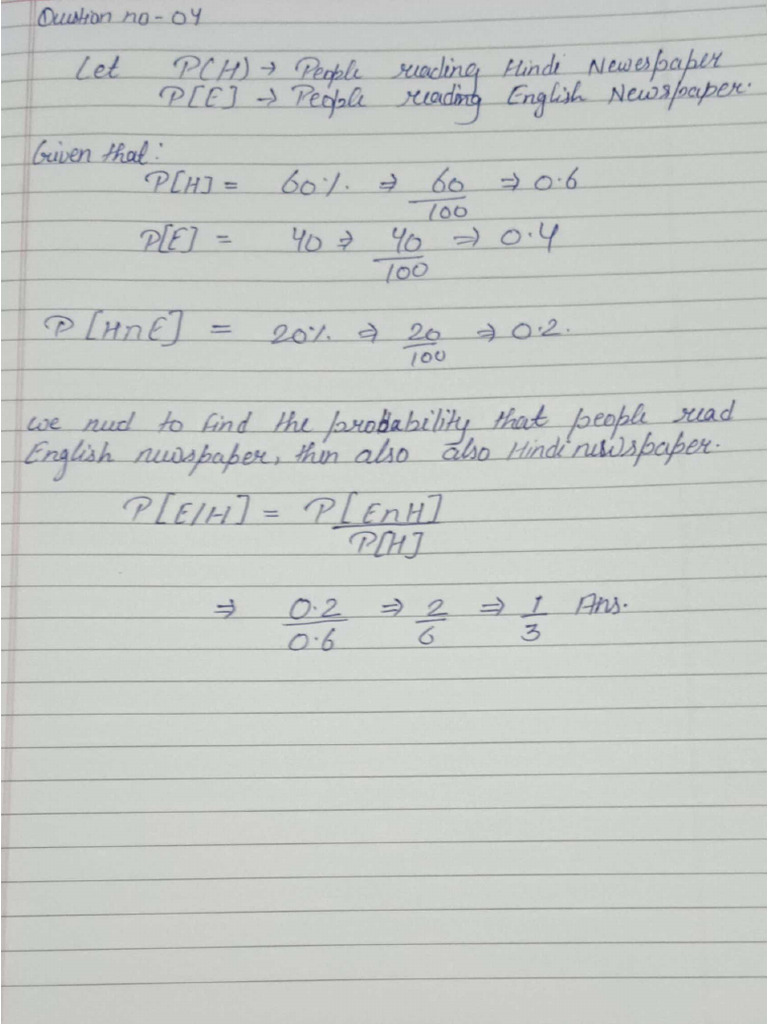 Question no - 04
Let P(H) → People reading Hindi Newespaper
P[E] → People reading English Newspaper.
Given that:
P[H] = 60% ⇒ 60/100 ⇒ 0.6
P[E] = 40 ⇒ 40/100 ⇒ 0.4
P [H∩E] = 20% ⇒ 20/100 ⇒ 0.2.
we need to find the probability that people read
English newspaper, then also also Hindi newspaper.
P[E/H] = P[E∩H]/P[H]
⇒ 0.2/0.6 ⇒ 2/6 ⇒ 1/3 Ans.